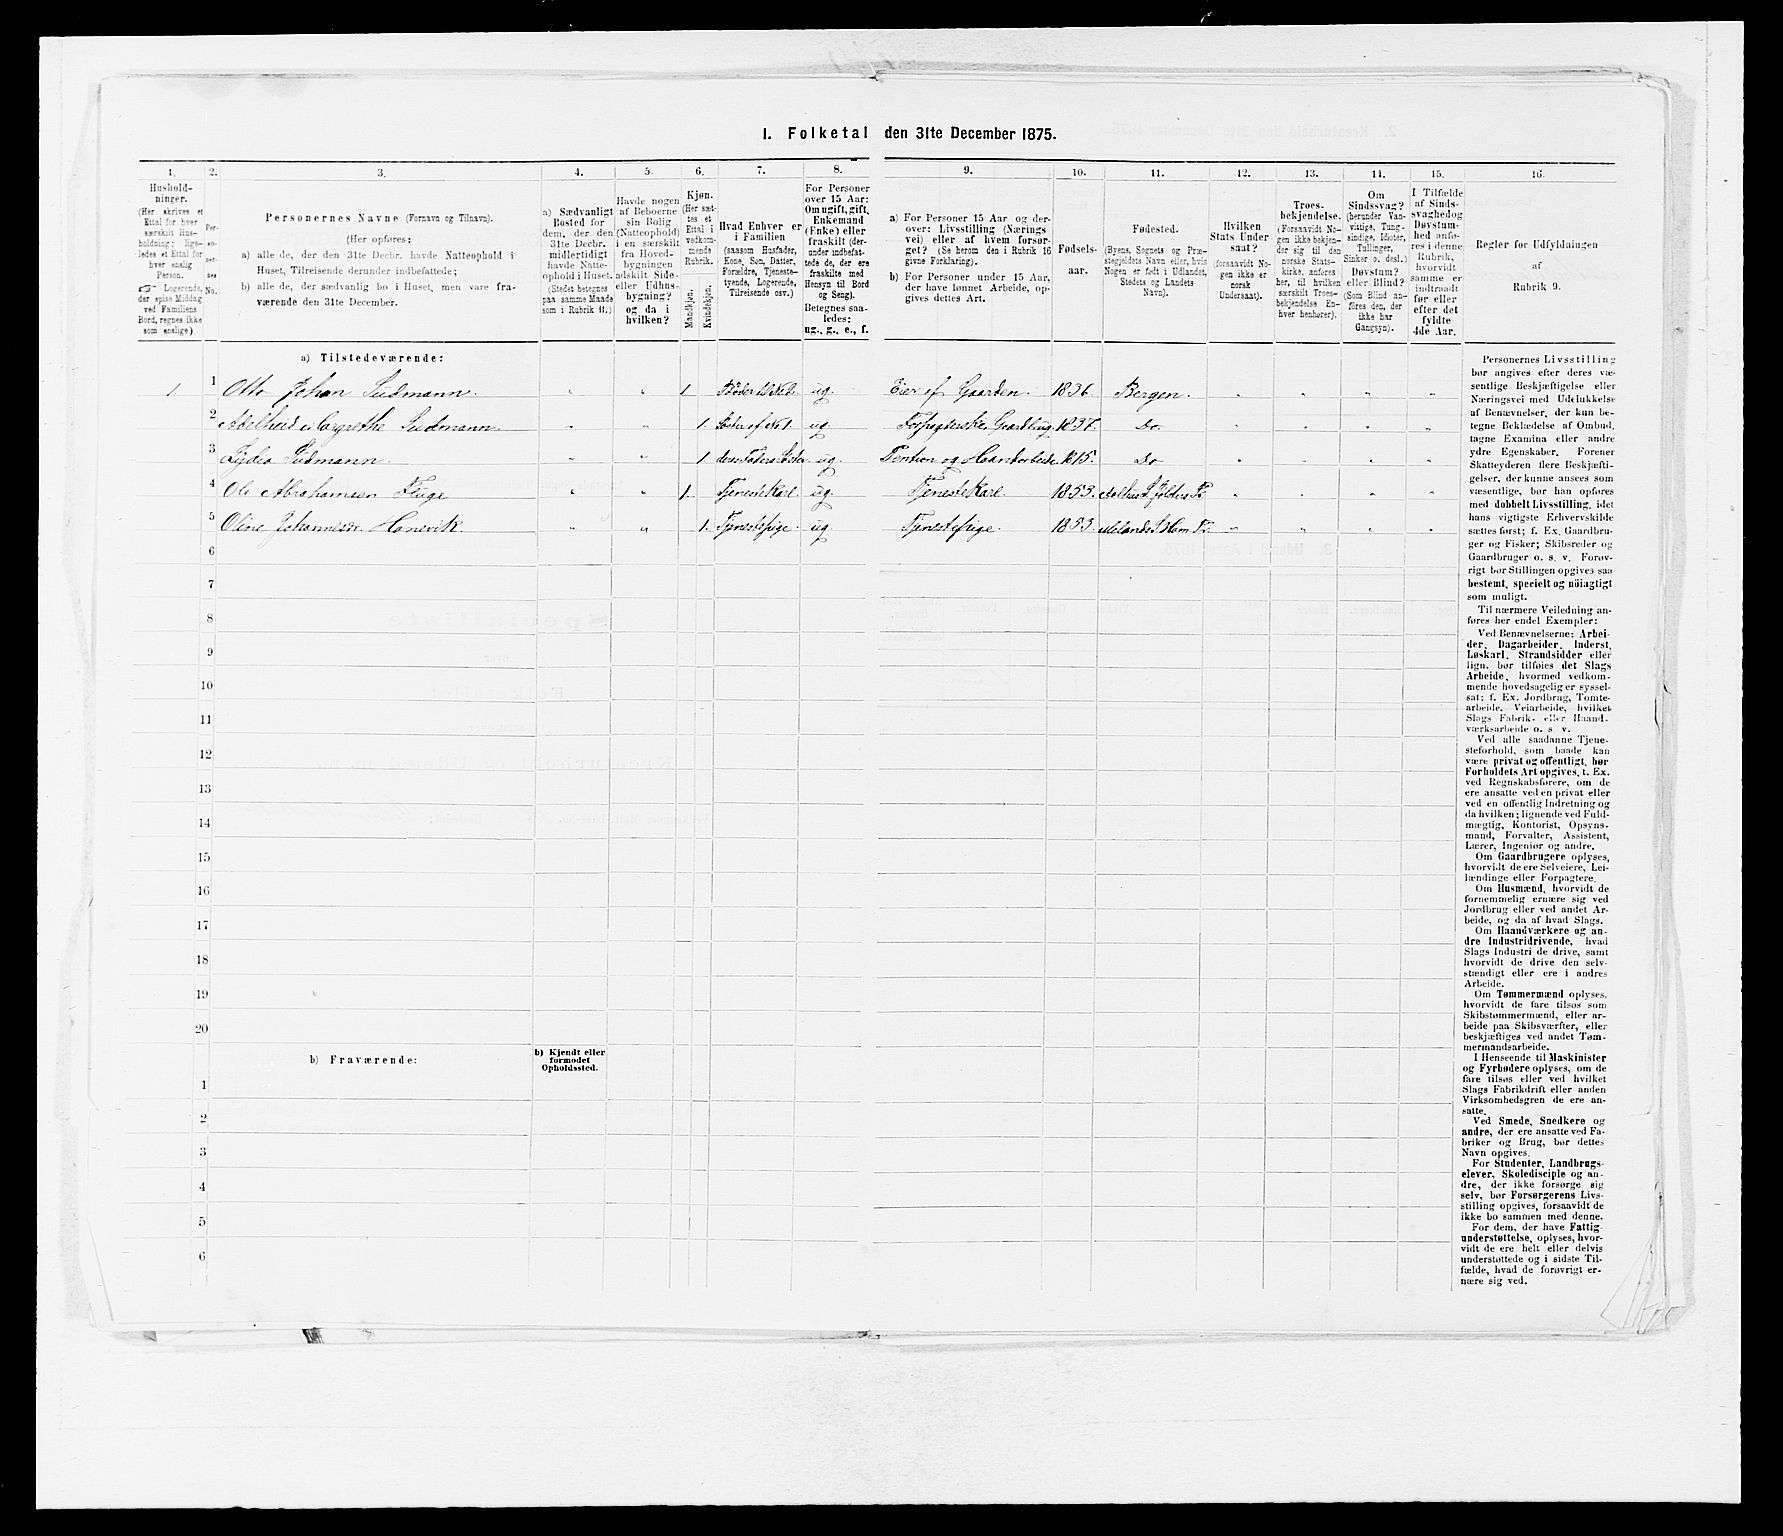 1. Folketal den 31te December 1875.
1. 2. 3. 4. 5. 6. 7. 8. 9. 10. 11. 12. 13. 14. 15. 16.
Hushold-
ninger.
(Her skrives et
Ettal for hver
særskilt Hus-
holdning; lige-
ledes et Ettal for
hver enslig
Person.
☞ Logerende,
der spise Middag
ved Familiens
Bord, regnes ikke
som enslige).
Per-
so-
ner-
nes
No.
Personernes Navne (Fornavn og Tilnavn).
(Her opføres:
a) alle de, der den 31te Decbr. havde Natteophold i
Huset, Tilreisende derunder indbefattede;
b) alle de, der sædvanlig bo i Huset, men vare fra-
værende den 31te December.
a) Sædvanligt
Bosted for
dem, der den
31te Decbr.
midlertidigt
havde Natte-
ophold i Huset.
(Stedet betegnes
paa samme Maade
som i Rubrik 11.)
Havde nogen
af Beboerne
sin Bolig
(Natteophold)
i en særskilt
fra Hoved-
bygningen
adskilt Side-
eller Udhus-
bygning?
og da i
hvilken?
Kjøn.
(Her sæt-
tes et
Ettal i
vedkom-
mende
Rubrik.
Mandkjøn.
Kvindekjøn.
Hvad Enhver er
i Familien
(saasom Husfader,
Kone, Søn, Datter,
Forældre, Tjeneste-
tyende, Logerende,
Tilreisende osv.)
For Personer
over 15 Aar:
Om ugift, gift,
Enkemand
(Enke) eller
fraskilt (der-
under indbefat-
tede de, der ere
fraskilte med
Hensyn til Bord
og Seng).
Betegnes saa-
ledes:
ug., g., e., f.
a) For Personer 15 Aar og der-
over: Livsstilling (Nærings
vei) eller af hvem forsør-
get? (Se herom den i Rubrik 16
givne Forklaring).
b) For Personer under 15 Aar,
der have lønnet Arbeide, op-
gives dettes Art.
Fødsels-
aar.
Fødested.
(Byens, Sognets og Præ-
stegjeldets Navn eller, hvis
Nogen er født i Udlandet,
Stedets og Landets
Navn).
Hvilken
Stats Under
saat?
(forsaavidt No-
gen ikke er
norsk
Undersaat).
Troes-
bekjendelse.
(Forsaavidt No-
gen ikke bekjen-
der sig til den
norske Stats-
kirke, anføres
her, til hvilken
særskilt Troes-
bekjendelse En-
hver henhører).
Om
Sindssvag?
(herunder Van-
vittige, Tung-
sindige, Idioter,
Tullinger,
Sinker o. desl.)
Døvstum?
eller Blind?
(Som Blind an-
føres den, der
ikke har
Gangsyn).
I Tilfælde
af Sinds-
svaghed og
Døvstum-
hed anfø-
res i denne
Rubrik,
hvorvidt
samme er
indtraadt
før eller
efter det
fyldte
4de Aar.
Regler for Udfyldningen
af
Rubrik 9.
a) Tilstedeværende:
1 1 Otto Johan Sudmann. " " 1 ug. Eier af Gaarden. 1836. Bergen. " " " "
2 Adelheid Margrethe Sudmann. " " 1. Søster af No 1. ug. Forpagterske, Gaardbrug. 1837. Do. " " " "
3 Lydia Sudmann. " " 1 deres Faders Søster ug. Pention og Haandarbeide 1815. Do " " " "
4 Ole Abrahamsen Fluge " " 1. Tjenestekarl. ug. Tjenestekarl 1853. " " " "
5 Oline Johannesdr. Honevik. " " 1. Tjenestepige. ug Tjenestepige. 1853. " " " "
6
7
8
9
10
11
12
13
14
15
16
17
18
19
20
b) Fraværende:
b) Kjendt eller
formodet
Opholdssted.
1
2
3
4
5
6
Personernes Livsstilling
bør angives efter deres væ-
sentlige Beskjæftigelse eller
Næringsvei med Udelukkelse
af Benævnelser, der kun be-
tegne Beklædelse af Ombud,
tagne Examina eller andre
ydre Egenskaber. Forener
Skatteyderen flere Beskjæfti-
gelser, der kunne ansees som
væsentlige, bør han opføres
med dobbelt Livsstilling, idet
hans vigtigste Erhvervskilde
sættes først; f. Ex. Gaardbru-
ger og Fisker; Skibsreder og
Gaardbruger o. s. v. Forøv-
rigt bør Stillingen opgives saa
bestemt, specielt og nöiagtigt
som muligt.
Til nærmere Veiledning an-
føres her endel Exempler:
Ved Benævnelserne: Arbei-
der, Dagarbeider, Inderst,
Løskarl, Strandsidder eller
lign. bør tilføies det Slags
Arbeide, hvormed vedkom-
mende hovedsagelig er syssel-
sat; f. Ex. Jordbrug, Tomte-
arbeide, Veiarbeide, hvilket
Slags Fabrik- eller Haand-
værksarbeide o. s. v.
Ved alle saadanne Tjene-
steforhold, som baade kan
være privat og offentligt, bør
Forholdets Art opgives, t. Ex.
ved Regnskabsførere, om de
ere ansatte ved en privat eller
ved en offentlig Indretning og
da hvilken; lignende ved Fuld-
mægtig, Kontorist, Opsyns-
mand, Forvalter, Assistent,
Lærer, Ingeniør og andre.
Om Gaardbrugere oplyses,
hvorvidt de ere Selveiere, Lei-
lændinge eller Forpagtere.
Om Husmænd, hvorvidt de
fornemmelig ernære sig ved
Jordbrug eller ved andet Ar-
beide, og da af hvad Slags.
Om Haandværkere og an-
dre Industridrivende, hvad
Slags Industri de drive, samt
hvorvidt de drive den selv-
stændigt eller ere i andres
Arbeide.
Om Tømmermænd oplyses,
hvorvidt de fare tilsøs som
Skibstømmermænd, eller ar-
beide paa Skibsværfter, eller
beskjæftiges ved andet Tøm-
mermandsarbeide.
I Henseende til Maskinister
og Fyrbødere oplyses, om de
fare tilsøs eller ved hvilket
Slags Fabrikdrift eller anden
Virksomhedsgren de ere an-
satte.
Ved Smede, Snedkere og
andre, der ere ansatte ved Fa-
briker og Brug, bør dettes
Navn opgives.
For Studenter, Landbrugs-
elever, Skoledisciple og an-
dre, der ikke forsørge sig
selv, bør Forsørgerens Livs-
stilling opgives, forsaavidt de
ikke bo sammen med denne.
For dem, der have Fattig-
understøttelse, oplyses, hvor-
vidt de ere helt eller delvis
understøttede og i sidste Til-
fælde, hvad de forøvrigt er-
nære sig ved.